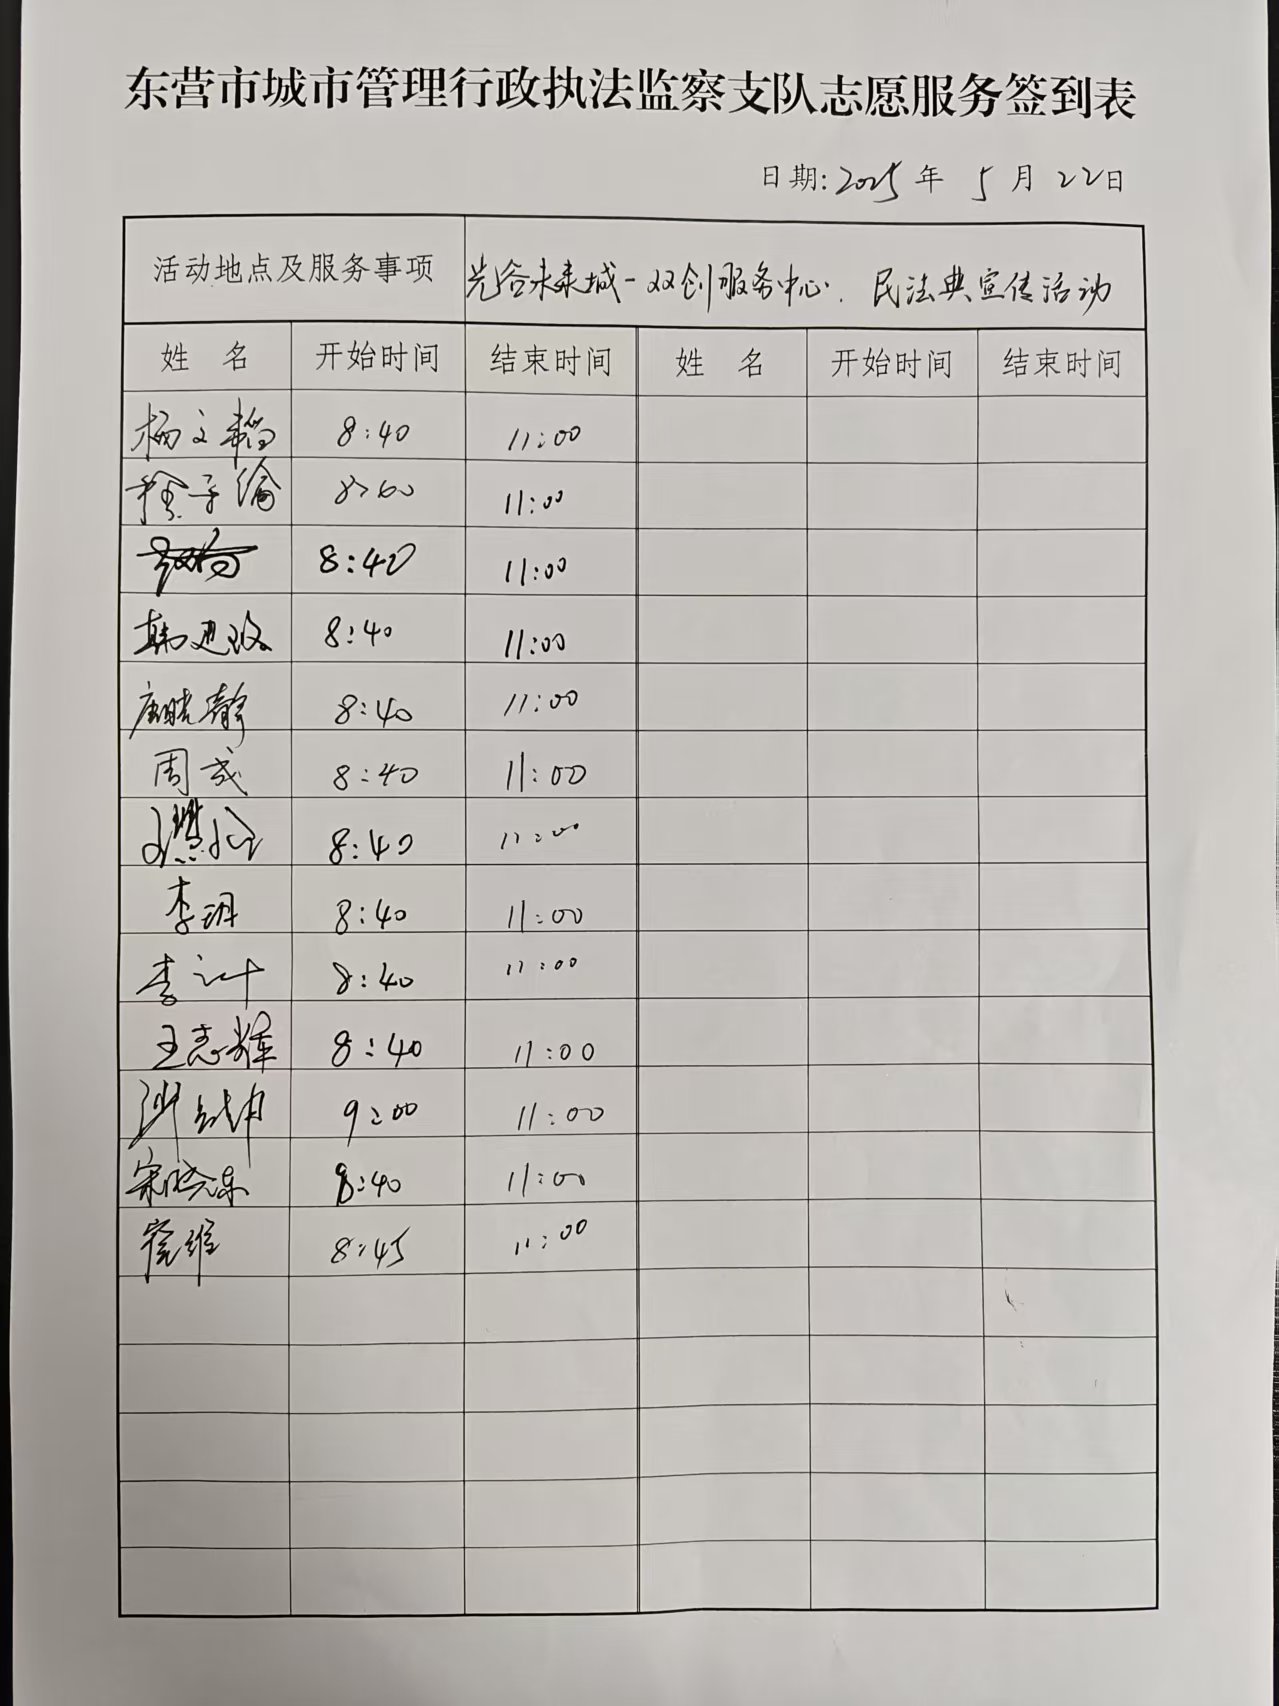 东营市城市管理行政执法监察支队志愿服务签到表
日期:2025年 5月 22日
活动地点及服务事项 光谷未来城-双创服务中心. 民法典宣传活动
姓 名 开始时间 结束时间 姓 名 开始时间 结束时间
杨文韬 8:40 11:00
11:00
8:40 11:00
韩进玫 8:40 11:00
唐晓静 8:40 11:00
周成 8:40 11:00
8:40 11:00
李玥 8:40 11:00
李 8:40 11:00
王志辉 8:40 11:00
9:00 11:00
宋晓东 8:40 11:00
崔维 8:45 11:00